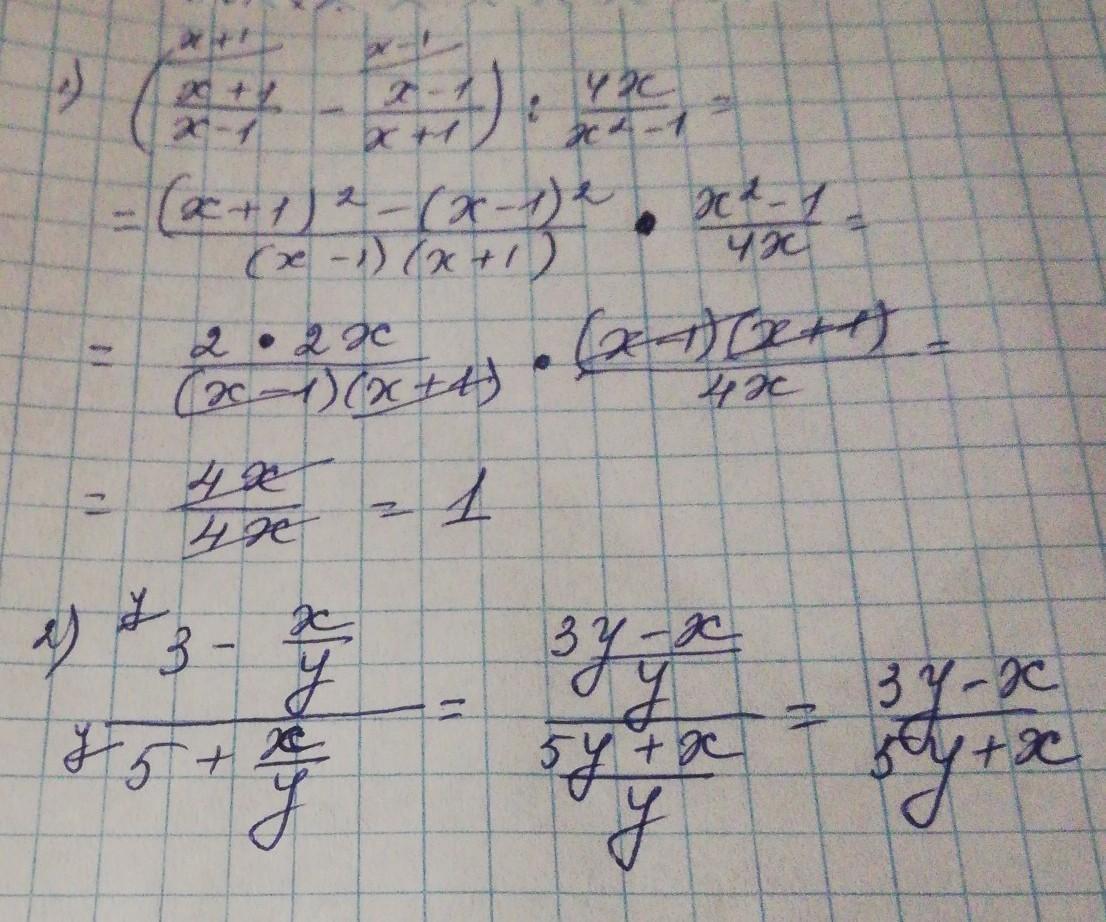 1) (x+1/ (x+1)/(x-1) - x-1/ (x-1)/(x+1)) : 4x/(x²-1) =
= ((x+1)² - (x-1)²)/((x-1)(x+1)) • (x²-1)/4x =
= (2 • 2x)/((x-1)(x+1)) • ((x-1)(x+1))/4x =
= 4x/4x = 1
2) (y/ 3 - x/y)/(y/ 5 + x/y) = ((3y-x)/y)/((5y+x)/y) = (3y-x)/(5y+x)